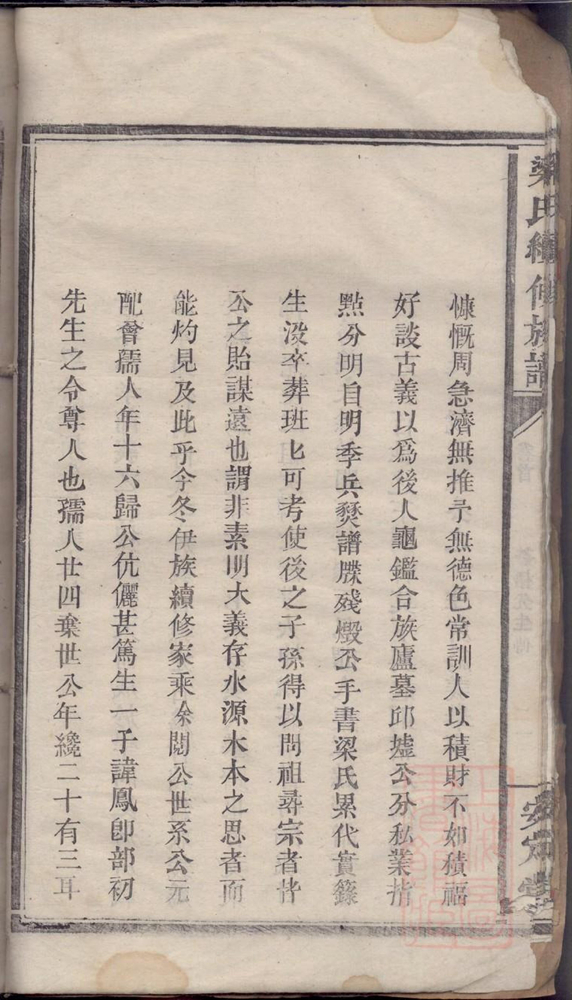 梁氏續修族譜
安定堂
慷慨周急濟無推予無德色常訓人以積財不如積福
好談古義以爲後人龜鑑合族廬墓邱墟公分私業指
點分明自明季兵燹譜牒殘燬公手書梁氏累代實錄
生没卒葬班匕可考使後之子孫得以問祖尋宗者皆
公之貽謀遠也謂非素明大義存水源木本之思者而
能灼見及此乎今冬伊族續修家乘余閱公世系公元
配會孺人年十六歸公伉儷甚篤生一子諱鳳卽部初
先生之令尊人也孺人廿四棄世公年纔二十有三耳